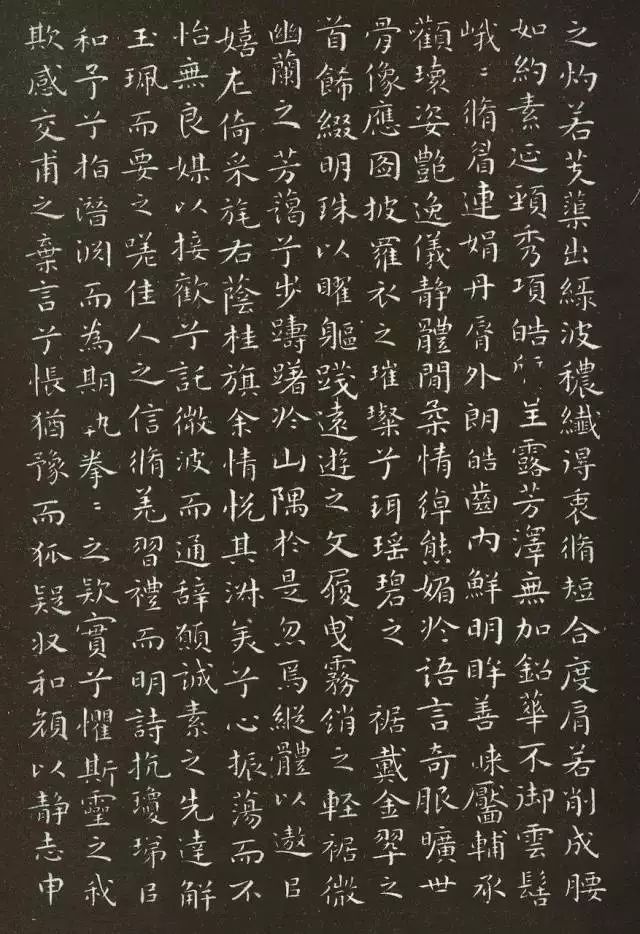 之灼若芙蕖出綠波穠纖得衷脩短合度肩若削成腰
如約素延頸秀項皓呈露芳澤無加鉛華不御雲髻
峨〻脩眉連娟丹脣外朗皓齒內鮮明眸善睞靨輔承
顴瓌姿艷逸儀靜體閑柔情綽態媚於語言奇服曠世
骨像應圖披羅衣之璀璨兮珥瑤碧之 裾戴金翠之
首飾綴明珠以曜軀踐遠遊之文履曳霧綃之輕裾微
幽蘭之芳藹兮步躊躇於山隅於是忽焉縱體以遨以
嬉左倚采旄右蔭桂旗余情悅其淑美兮心振蕩而不
怡無良媒以接歡兮託微波而通辭願誠素之先達解
玉珮而要之嗟佳人之信脩羌習禮而明詩抗瓊珶以
和予兮指潛淵而為期執拳〻之款實兮懼斯靈之我
欺感交甫之棄言兮悵猶豫而狐疑收和顏以靜志申